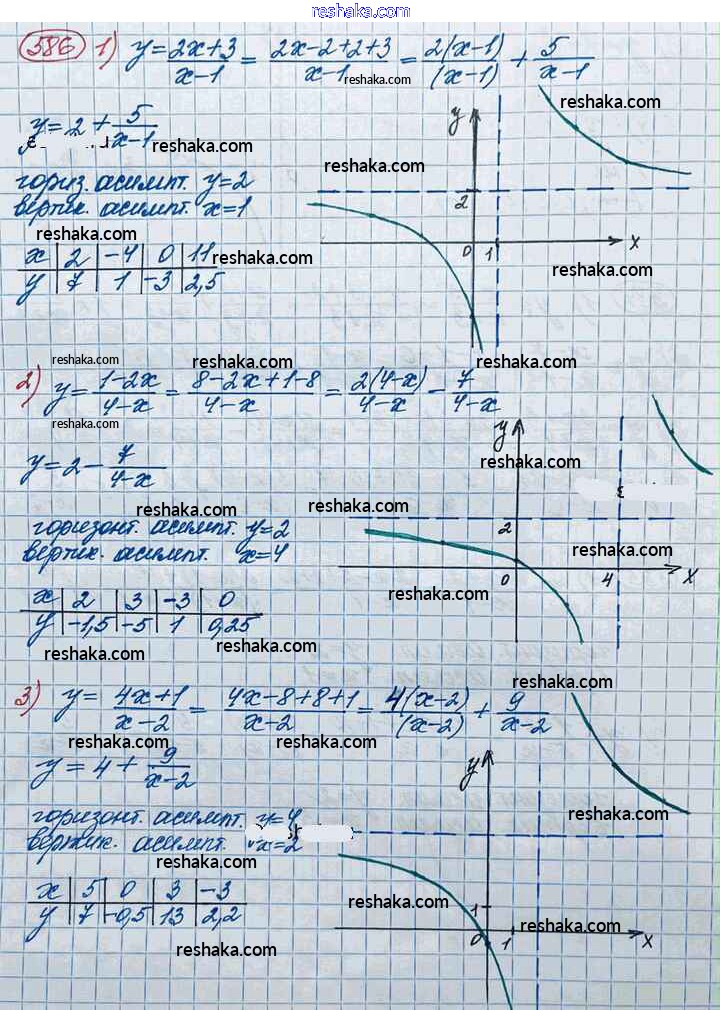 reshaka.com
586 1) y = (2x+3)/(x-1) = (2x-2+2+3)/(x-1) = 2(x-1)/(x-1) + 5/(x-1)
reshaka.com
reshaka.com
y = 2 + 5/(x-1)
reshaka.com
reshaka.com
y
гориз. асимпт. y=2
вертик. асимпт. x=1
2
reshaka.com
x 2 -4 0 11
y 7 1 -3 2,5
reshaka.com
0 1 x
reshaka.com
reshaka.com
reshaka.com
reshaka.com
2) y = (1-2x)/(4-x) = (8-2x+1-8)/(4-x) = 2(4-x)/(4-x) - 7/(4-x)
reshaka.com
y
reshaka.com
y = 2 - 7/(4-x)
reshaka.com
reshaka.com
горизонт. асимпт. y=2
вертик. асимпт. x=4
2
reshaka.com
0 4 x
reshaka.com
x 2 3 -3 0
y -1,5 -5 1 0,25
reshaka.com
reshaka.com
3) y = (4x+1)/(x-2) = (4x-8+8+1)/(x-2) = 4(x-2)/(x-2) + 9/(x-2)
reshaka.com
reshaka.com
y = 4 + 9/(x-2)
y
горизонт. асимпт. y=4
вертик. асимпт. x=2
reshaka.com
reshaka.com
x 5 0 3 -3
y 7 -0,5 13 2,2
reshaka.com
1
0 1 x
reshaka.com
reshaka.com